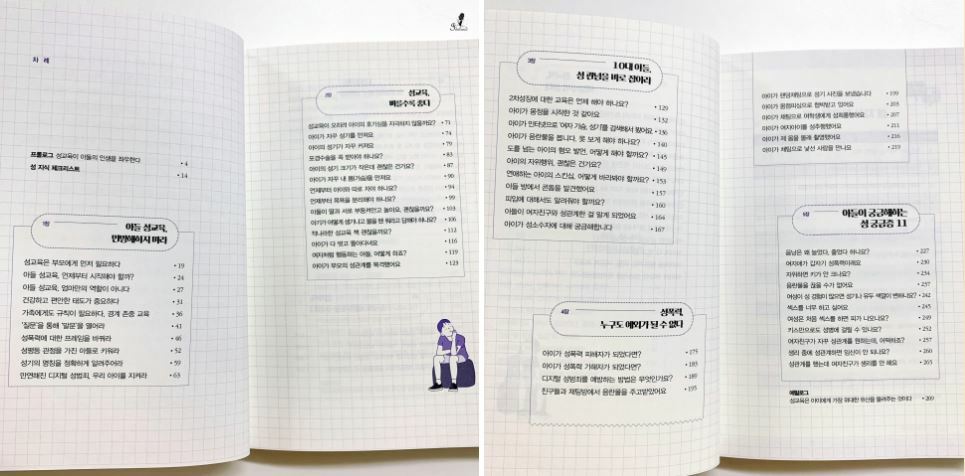 차 례
프롤로그 성교육이 아들의 인생을 좌우한다 • 4
성 지식 체크리스트 • 14
1장
아들 성교육,
민망해하지 마라
성교육은 부모에게 먼저 필요하다 • 19
아들 성교육, 언제부터 시작해야 할까? • 24
아들 성교육, 엄마만의 역할이 아니다 • 27
건강하고 편안한 태도가 중요하다 • 31
가족에게도 규칙이 필요하다, 경계 존중 교육 • 36
'질문'을 통해 '말문'을 열어라 • 41
성폭력에 대한 프레임을 바꿔라 • 46
성평등 관점을 가진 아들로 키워라 • 52
성기의 명칭을 정확하게 알려주어라 • 59
만연해진 디지털 성범죄, 우리 아이를 지켜라 • 63
2장
성교육,
빠를수록 좋다
성교육이 오히려 아이의 호기심을 자극하지 않을까요? • 71
아이가 자꾸 성기를 만져요 • 74
아이의 성기가 자꾸 커져요 • 79
포경수술을 꼭 받아야 하나요? • 83
아이의 성기 크기가 작은데 괜찮은 건가요? • 87
아이가 자꾸 내 몸(가슴)을 만져요 • 90
언제부터 아이와 따로 자야 하나요? • 94
언제부터 목욕을 분리해야 하나요? • 99
아들이 딸과 서로 부둥켜안고 놀아요, 괜찮을까요? • 103
아기가 어떻게 생기냐고 물을 땐 뭐라고 답해야 하나요? • 106
적나라한 성교육 책 괜찮을까요? • 112
아이가 다 벗고 돌아다녀요 • 116
여자처럼 행동하는 아들, 어떻게 하죠? • 119
아이가 부모의 성관계를 목격했어요 • 123
3장
10대 아들,
성 관념을 바로 잡아라
2차성징에 대한 교육은 언제 해야 하나요? • 129
아이가 몽정을 시작한 것 같아요 • 132
아이가 인터넷으로 '여자 가슴, 성기'를 검색해서 봤어요 • 136
아이가 음란물을 봅니다. 못 보게 해야 하나요? • 140
도를 넘는 아이의 혐오 발언, 어떻게 해야 할까요? • 145
아이의 자위행위, 괜찮은 건가요? • 149
연애하는 아이의 스킨십, 어떻게 바라봐야 할까요? • 153
아들 방에서 콘돔을 발견했어요 • 157
피임에 대해서도 알려줘야 할까요? • 160
아들이 여자친구와 성관계한 걸 알게 되었어요 • 164
아이가 성소수자에 대해 궁금해합니다 • 167
4장
성폭력,
누구도 예외가 될 수 없다
아이가 성폭력 피해자가 되었다면? • 175
아이가 성폭력 가해자가 되었다면? • 183
디지털 성범죄를 예방하는 방법은 무엇인가요? • 189
친구들과 채팅방에서 음란물을 주고받았어요 • 195
아이가 랜덤채팅으로 성기 사진을 보냈습니다 • 199
아이가 몸캠피싱으로 협박받고 있어요 • 203
아이가 채팅으로 여학생에게 성희롱했어요 • 207
아이가 여자아이를 성추행했어요 • 211
아이가 제 몸을 몰래 촬영했어요 • 216
아이가 채팅으로 낯선 사람을 만나요 • 219
5장
아들이 궁금해하는
성 궁금증 11
음낭은 왜 늘었다, 줄었다 하나요? • 227
여자애가 갑자기 성폭력이래요 • 230
자위하면 키가 안 크나요? • 234
음란물을 끊을 수가 없어요 • 237
여성이 성 경험이 많으면 성기나 유두 색깔이 변하나요? • 242
섹스를 너무 하고 싶어요 • 245
여성은 처음 섹스를 하면 피가 나오나요? • 249
키스만으로도 성병에 걸릴 수 있나요? • 252
여자친구가 자꾸 성관계를 원하는데, 어떡하죠? • 257
생리 중에 성관계하면 임신이 안 되나요? • 260
성관계를 했는데 여자친구가 생리를 안 해요 • 263
에필로그
성교육은 아이에게 가장 위대한 유산을 물려주는 것이다 • 269